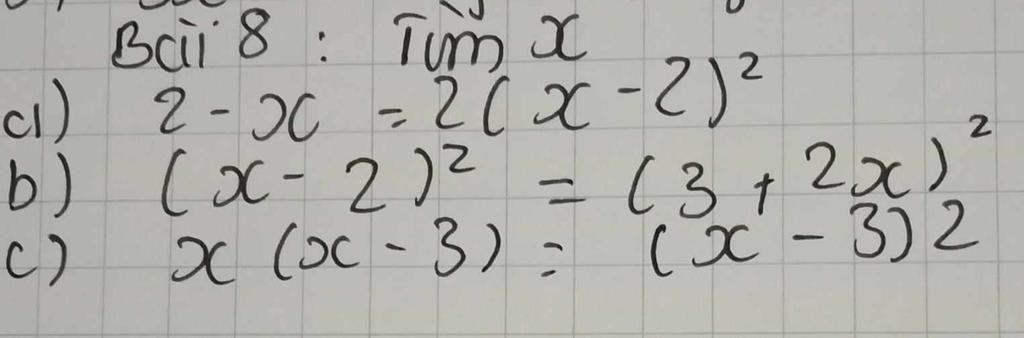 Bài 8 : Tìm x
a) 2 - x = 2(x - 2)²
b) (x - 2)² = (3 + 2x)²
c) x (x - 3) = (x - 3)2